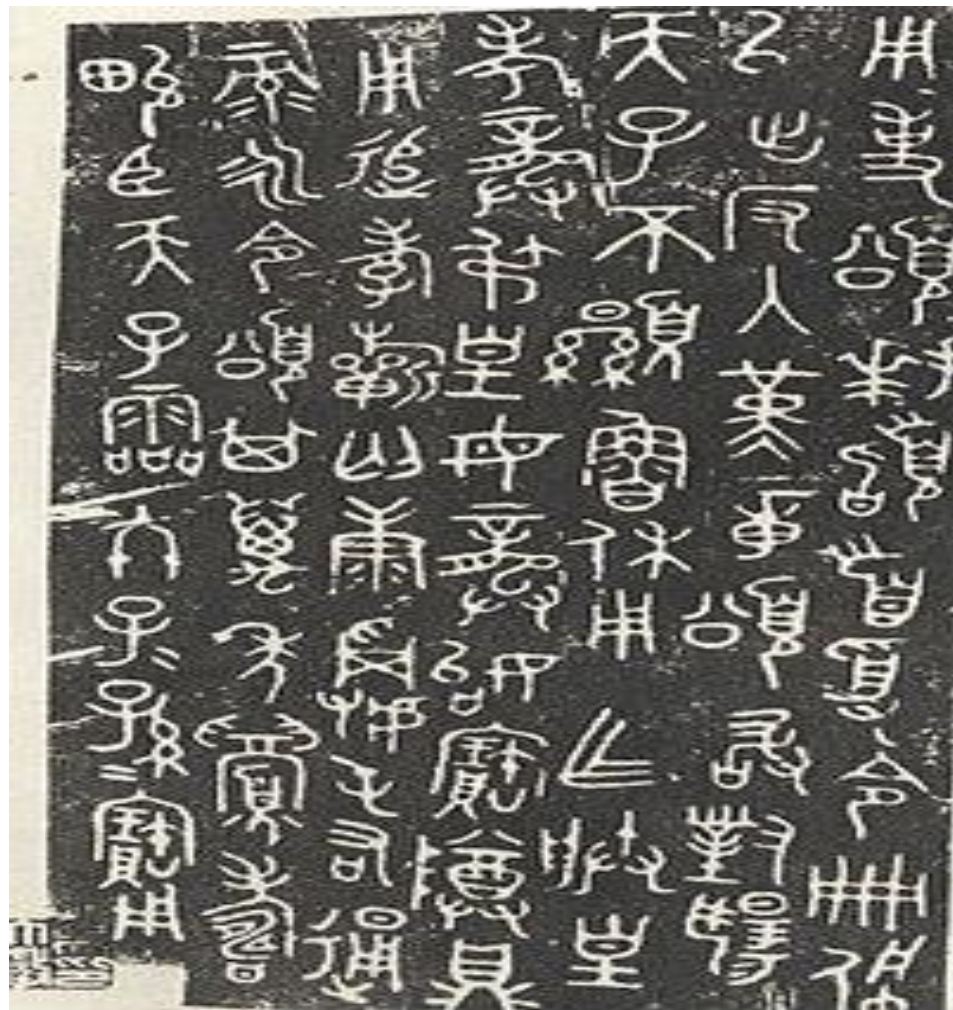 用事頌拜𩒨首受令冊佩
以出反入堇章頌敢對揚
天子不顯魯休用乍朕皇
考龏弔皇母龏始寶尊鼎
用追孝祈匃康屯右通
彔永令頌其萬年眉壽
畯臣天子霝冬子=孫=寶用